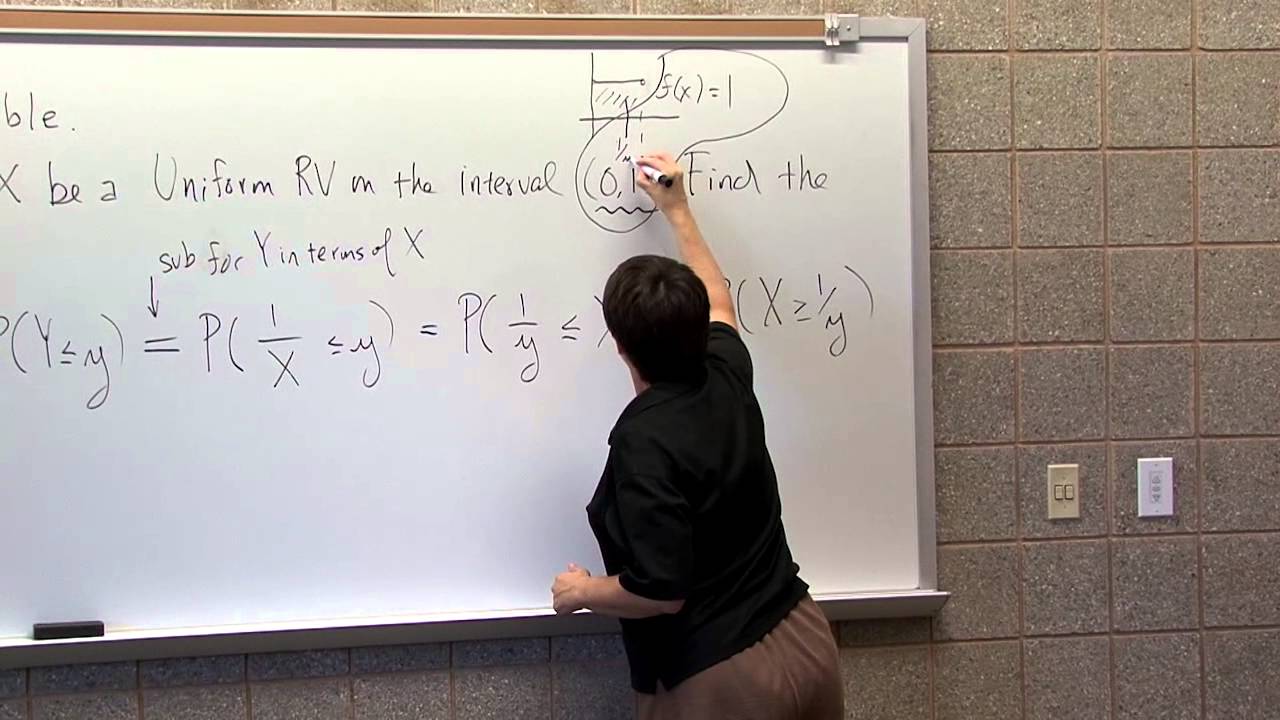 f(x) = 1
1/y 1
ble.
X be a Uniform RV on the interval (0,1 Find the
sub for Y in terms of X
P(Y ≤ y) = P( 1/X ≤ y) = P( 1/y ≤ (X ≥ 1/y)